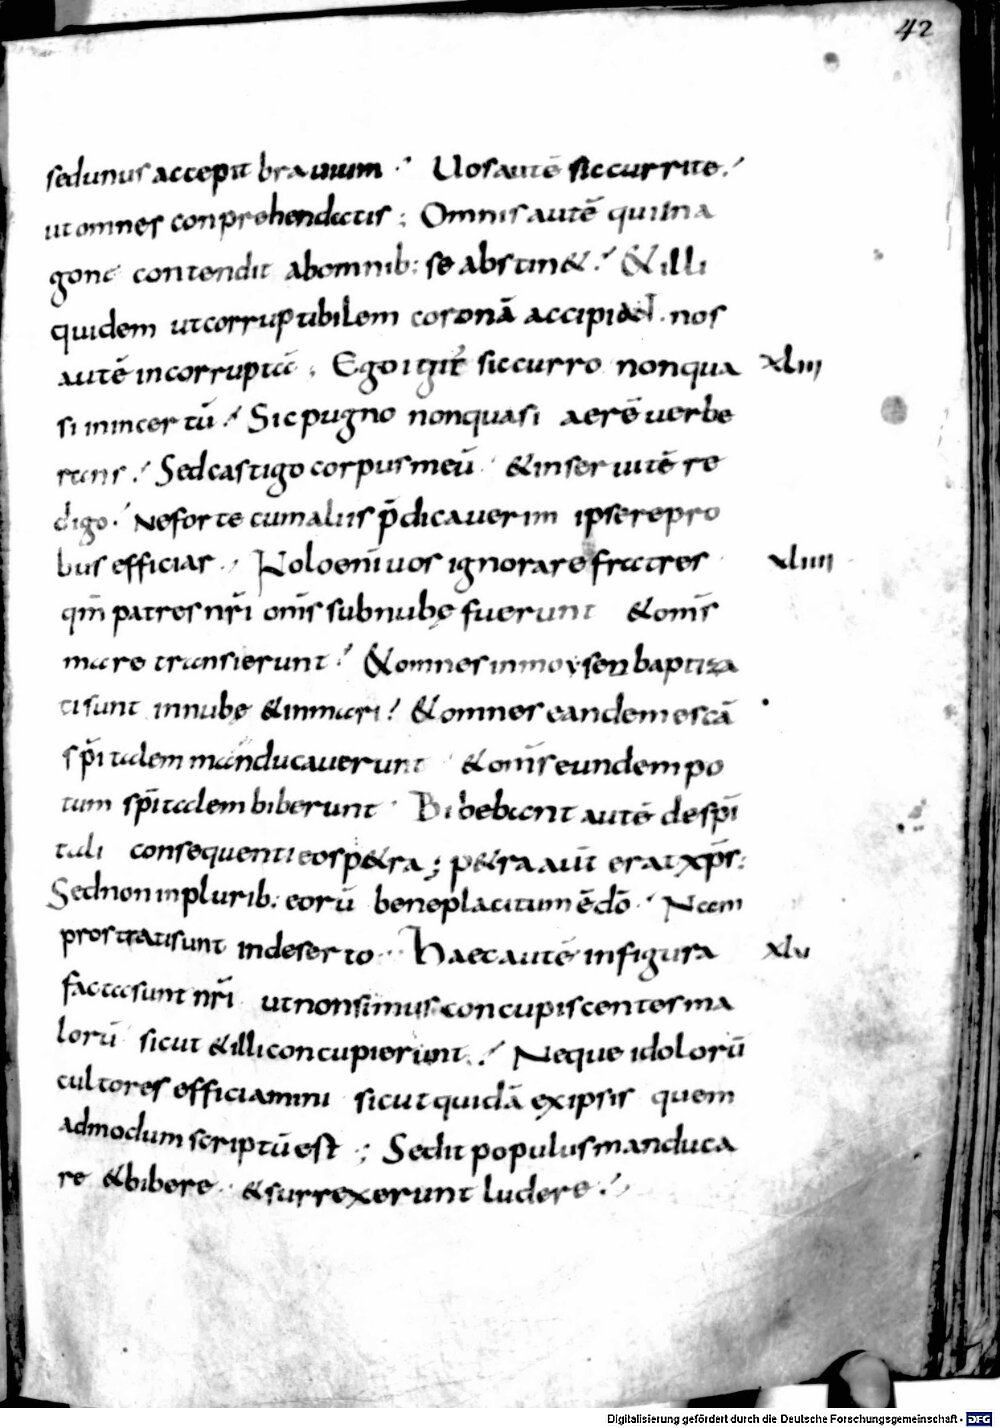 42
sed unus accepit brauium. Uos autē sic currite.
ut omnes conprehendatis; Omnis autē qui in a
gone contendit ab omnib: se abstin&. & illi
quidem ut corruptibilem coronā accipiant. nos
autē incorruptā; Ego igit̄ sic curro non qua xliii
si in incertū. Sic pugno non quasi aerē uerbe
rans. Sed castigo corpus meū & in seruitutē re
digo. Ne forte cum aliis p̄dicauerim ipse repro
bus efficiar. Nolo enī uos ignorare fratres xliiii
qm̄ patres nr̄i om̄s sub nubę fuerunt & om̄s
mare transierunt. & omnes in moysen baptiza
ti sunt in nubę & in mari. & omnes eandem escā
sp̄italem manducauerunt & om̄s eundem po
tum sp̄italem biberunt. Bibebant autē de sp̄i
tali consequenti eos p&ra; p&ra aut̄ erat xp̄s:
Sed non in plurib: eorū beneplacitum ē dō. Nam
prostrati sunt in deserto. Haec autē in figura xlv
facta sunt nr̄i ut non simus concupiscentes ma
lorū sicut & illi concupierunt. Neque idolorū
cultores efficiamini sicut quidā ex ipsis quem
admodum scriptū est; Sedit populus manduca
re & bibere & surrexerunt ludere.
Digitalisierung gefördert durch die Deutsche Forschungsgemeinschaft - DFG